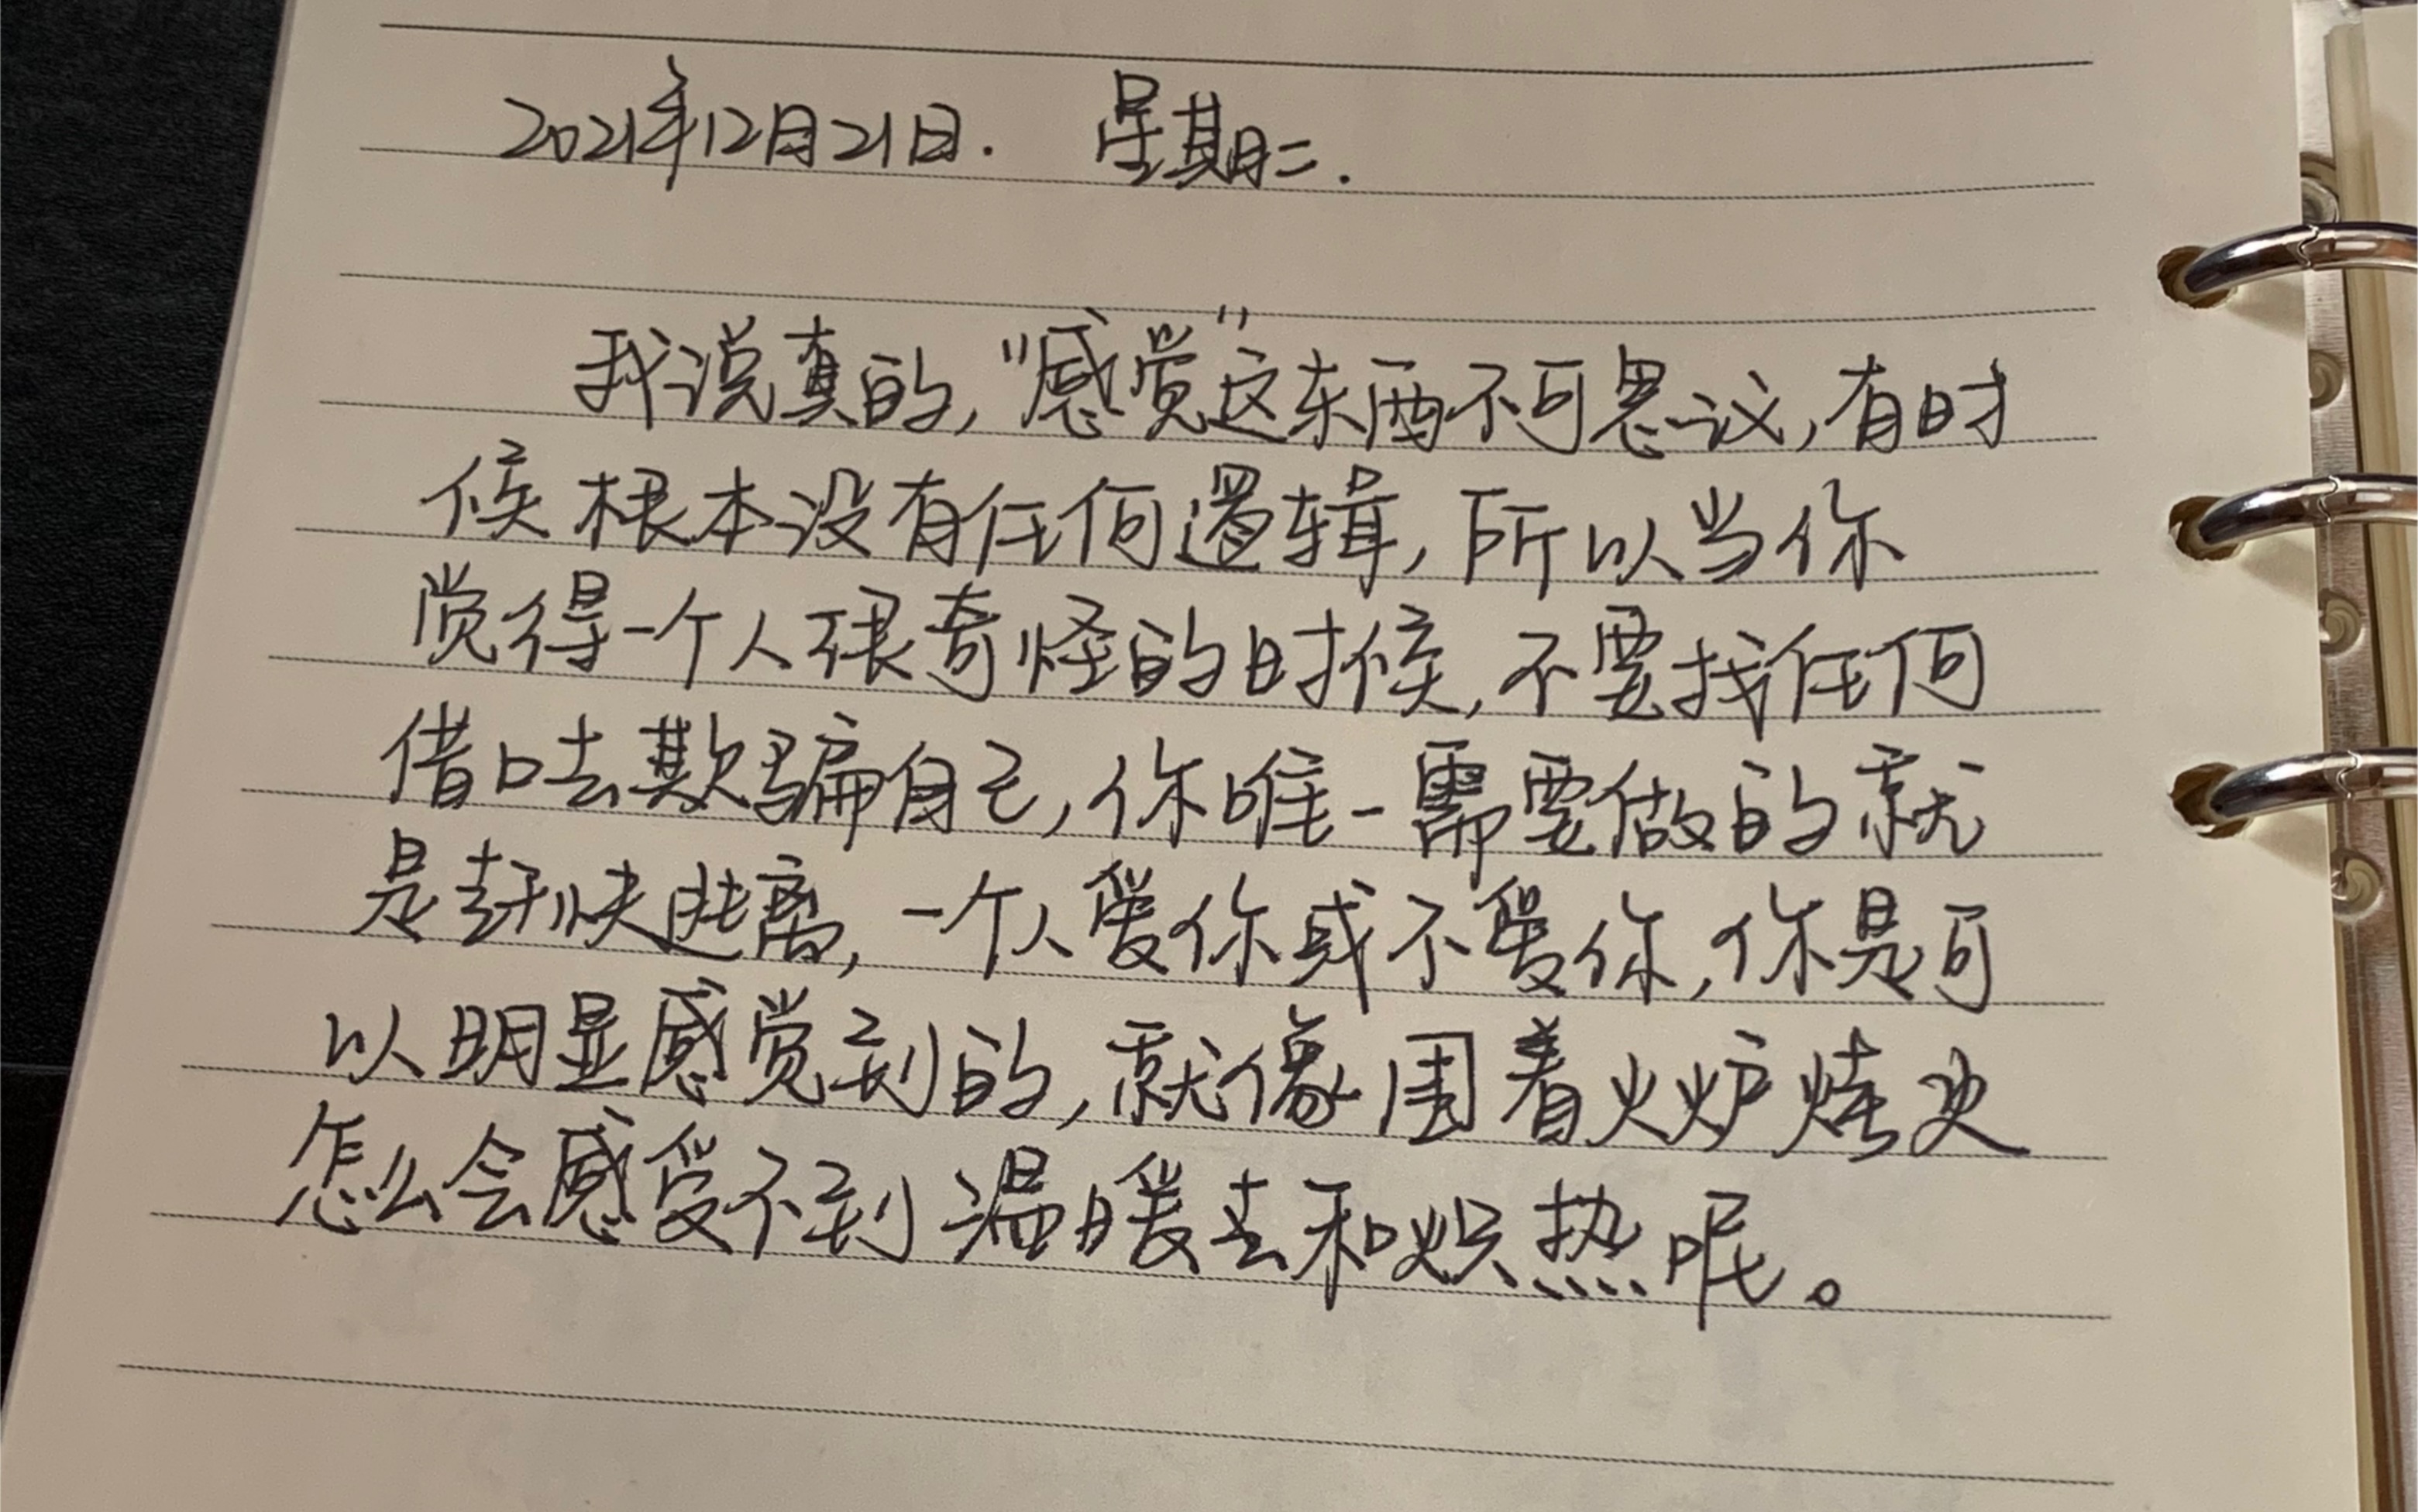 2021年12月21日. 星期二.
我说真的,“感觉”这东西不可思议,有时
候根本没有任何逻辑,所以当你
觉得一个人很奇怪的时候,不要找任何
借口去欺骗自己,你唯一需要做的就
是赶快逃离,一个人爱你或不爱你,你是可
以明显感觉到的,就像围着火炉烤火
怎么会感受不到温暖去和炽热呢。